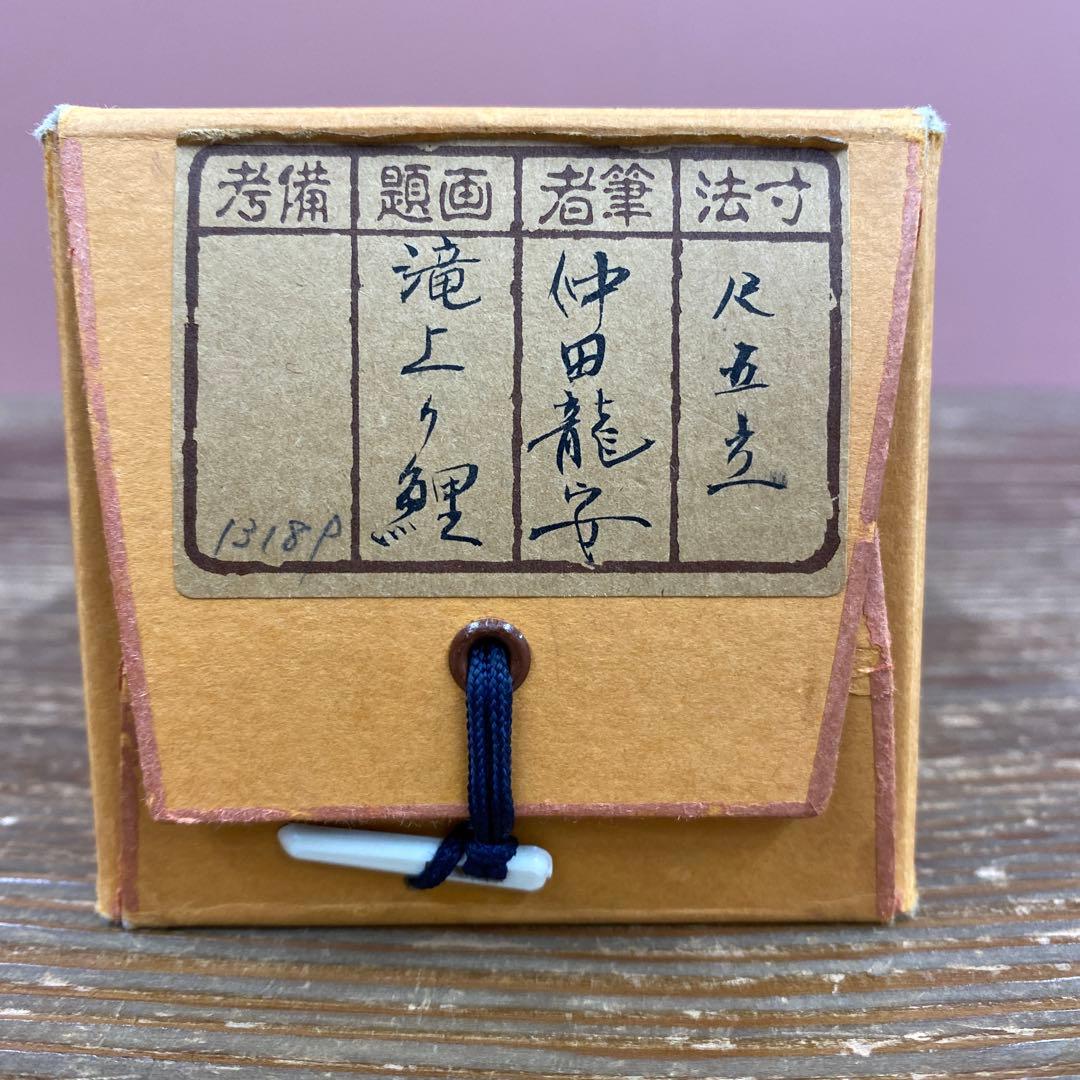 寸法
尺五立
筆者
仲田龍安
画題
滝上り鯉
備考
1318P